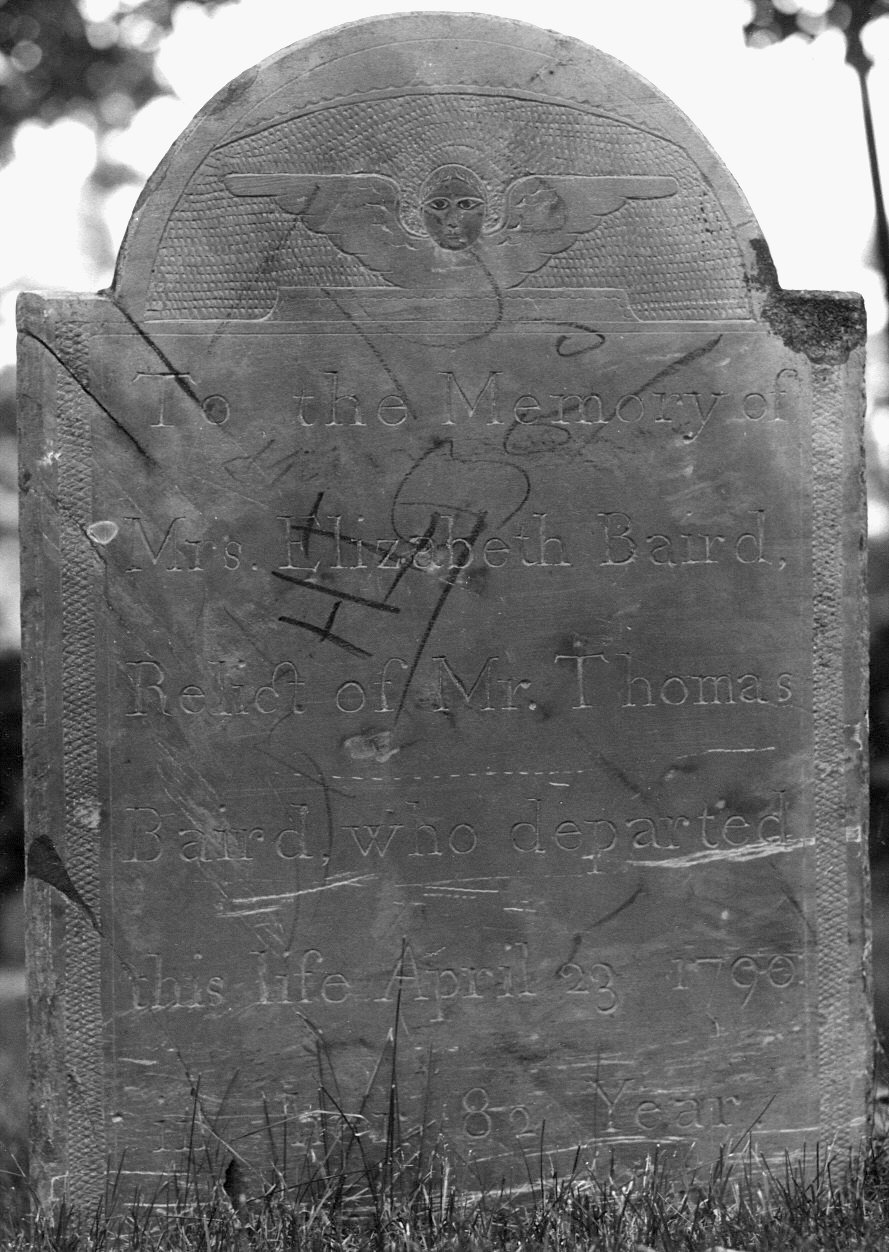 To the Memory of
Mrs. Elizabeth Baird,
Relict of Mr. Thomas
Baird, who departed
this life April 23 1790.
82 Year